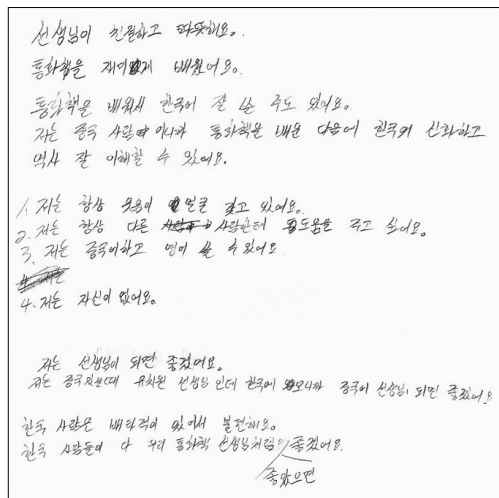 선생님이 친절하고 따뜻해요.
통화책을 재미게 배웠어요.
통화책을 배워서 한국어 잘 쓸 주도 있어요.
저는 중국 사람이니까 통화책을 배운 다음에 한국의 신화하고
역사 잘 이해할 수 있어요.
1. 저는 항상 웃음이 얼굴 갖고 있어요.
2. 저는 항상 다른 사람한테 도움을 주고 싶어요.
3. 저는 중국어하고 영어 쓸 수 있어요.
4. 저는 자신이 있어요.
저는 선생님이 되면 좋겠어요.
저는 중국 때 유치원 선생님인데 한국에 오니까 중국어 선생님 되면 좋겠어요
한국 사람은 배타적이 있어서 불편해요.
한국 사람들이 다 우리 통화책 선생님처럼 좋겠어요.
좋았으면